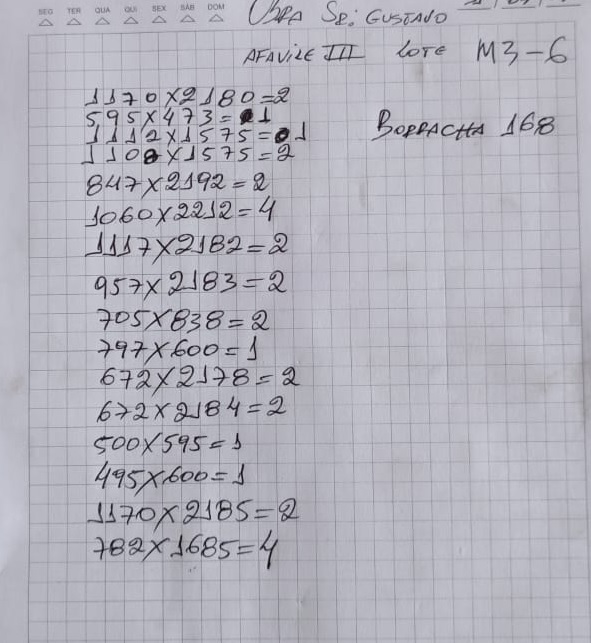 SEG TER QUA QUI SEX SÁB DOM
OBRA SR: GUSTAVO
AFAVILE III LOTE M3-6
1170X2180=2
595X473=1
1112X1575=1
BORRACHA 168
1108X1575=2
847X2192=2
1060X2212=4
1117X2182=2
957X2183=2
705X838=2
797X600=1
672X2178=2
672X2184=2
500X595=1
495X600=1
1170X2185=2
782X1685=4